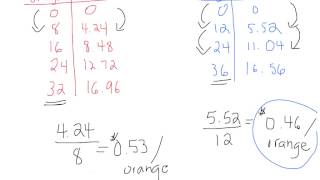 0 0
8 4.24
16 8.48
24 12.72
32 16.96
4.24
8
= $0.53/
orange
0 0
12 5.52
24 11.04
36 16.56
5.52
12
= $0.46/
orange